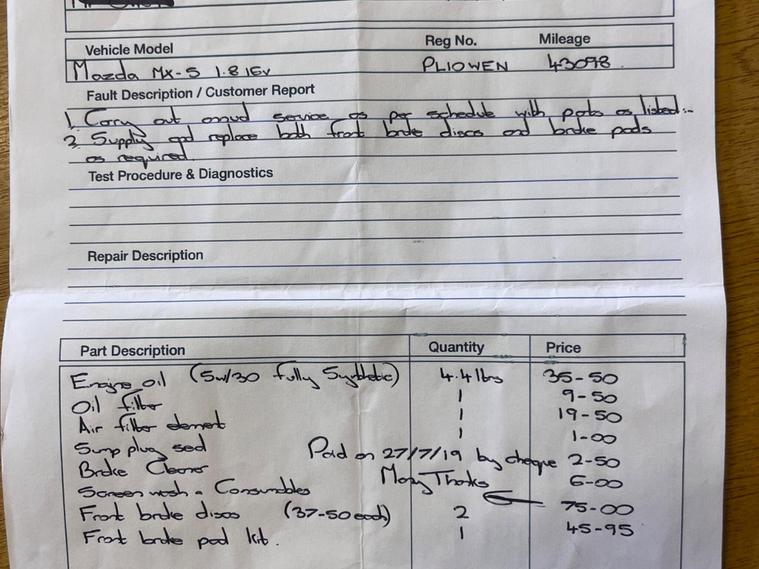 Vehicle Model Reg No. Mileage
Mazda MX-5 1.8 16v PL10WEN 43098
Fault Description / Customer Report
1. Carry out annual service as per schedule with parts as listed:-
2. Supply and replace both front brake discs and brake pads
as required.
Test Procedure & Diagnostics
Repair Description
Part Description Quantity Price
Engine oil (5w/30 fully Synthetic) 4.4 ltrs 35-50
Oil filter 1 9-50
Air filter element 1 19-50
Sump plug seal 1 1-00
Brake Cleaner 2-50
Paid on 27/7/19 by cheque
Many Thanks
Screen wash & Consumables 6-00
Front brake discs (37-50 each) 2 75-00
Front brake pad kit. 1 45-95